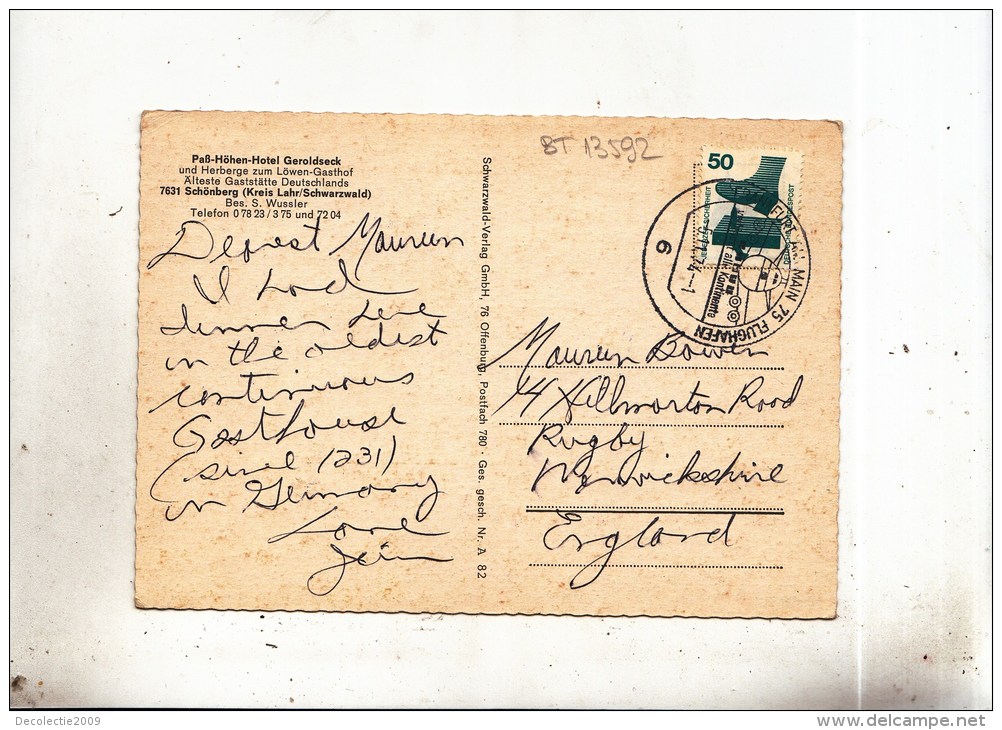 Paß-Höhen-Hotel Geroldseck
und Herberge zum Löwen-Gasthof
Älteste Gaststätte Deutschlands
7631 Schönberg (Kreis Lahr/Schwarzwald)
Bes. S. Wussler
Telefon 0 78 23 / 3 75 und 72 04
Dearest Maureen
I had
dinner here
in the oldest
continuous
Gasthouse
(since 1231)
in Germany
Love
Schwarzwald-Verlag GmbH, 76 Offenburg, Postfach 780 · Ges. gesch. Nr. A 82
BT 13592
50
JEDERZEIT SICHERHEIT
DEUTSCHE BUNDESPOST
MAIN 75 FLUGHAFEN
alle Kontinente
6
Maureen Bowen
14 Hillmorton Road
Rugby
Warwickshire
England
Decolectie2009
delcampe.net